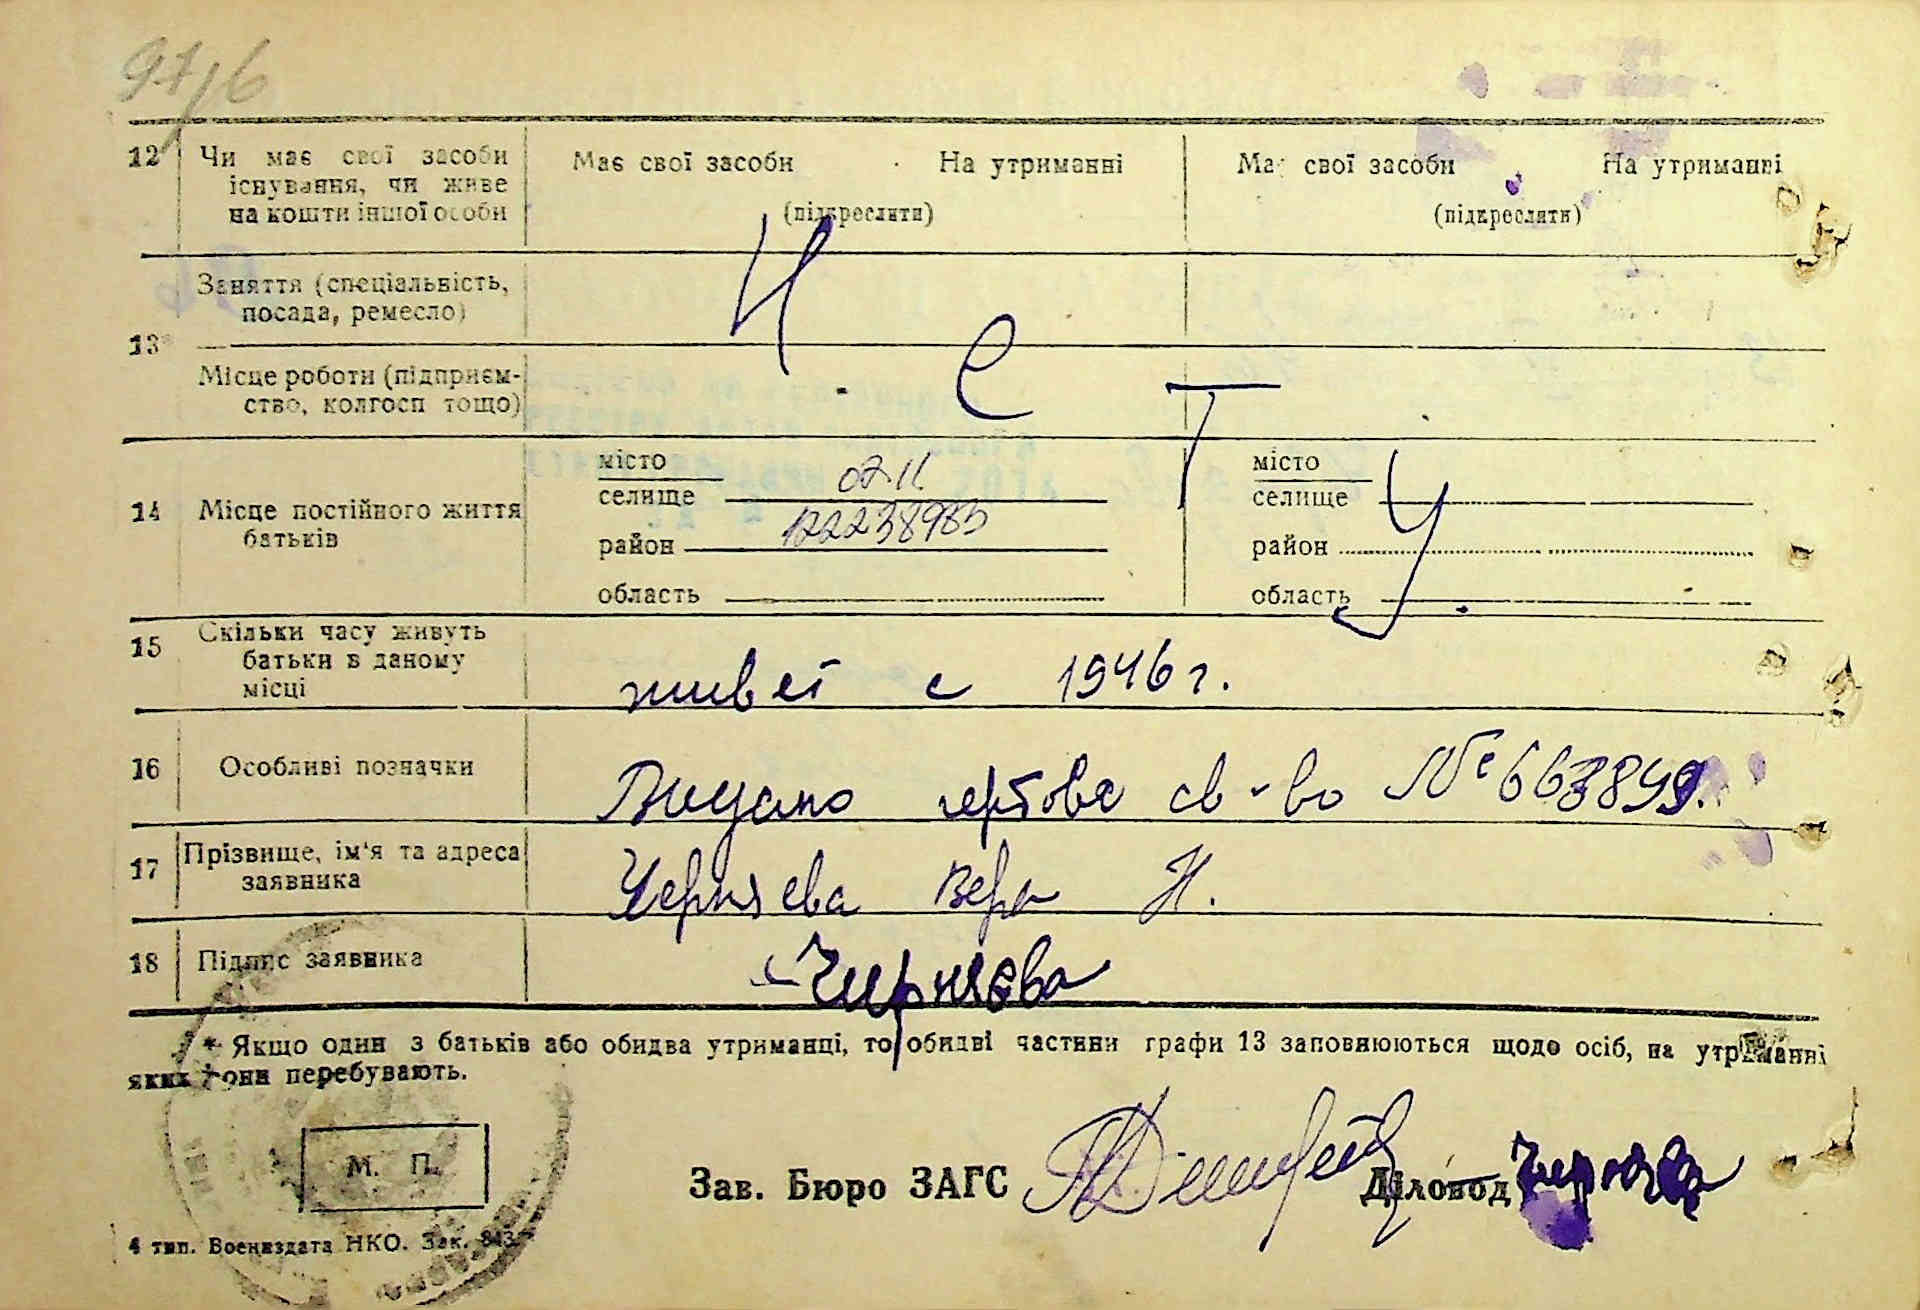 97/6
12 Чи має свої засоби існування, чи живе на кошти іншої особи
Має свої засоби На утриманні
(підкреслити)
Має свої засоби На утриманні
(підкреслити)
13* Заняття (спеціальність, посада, ремесло)
Місце роботи (підприємство, колгосп тощо)
Н е т у
14 Місце постійного життя батьків
місто
селище 02.11
район 12238983
область
місто
селище
район
область
15 Скільки часу живуть батьки в даному місці
живет с 1946 г.
16 Особливі позначки
Видано гербове св-во № 663899.
17 Прізвище, ім'я та адреса заявника
Черняева Вера Н.
18 Підпис заявника
Чирняева
* Якщо один з батьків або обидва утриманці, то обидві частини графи 13 заповнюються щодо осіб, на утриманні
яких вони перебувають.
М. П.
Зав. Бюро ЗАГС
Діловод
4 тип. Воениздата НКО. Зак. 843